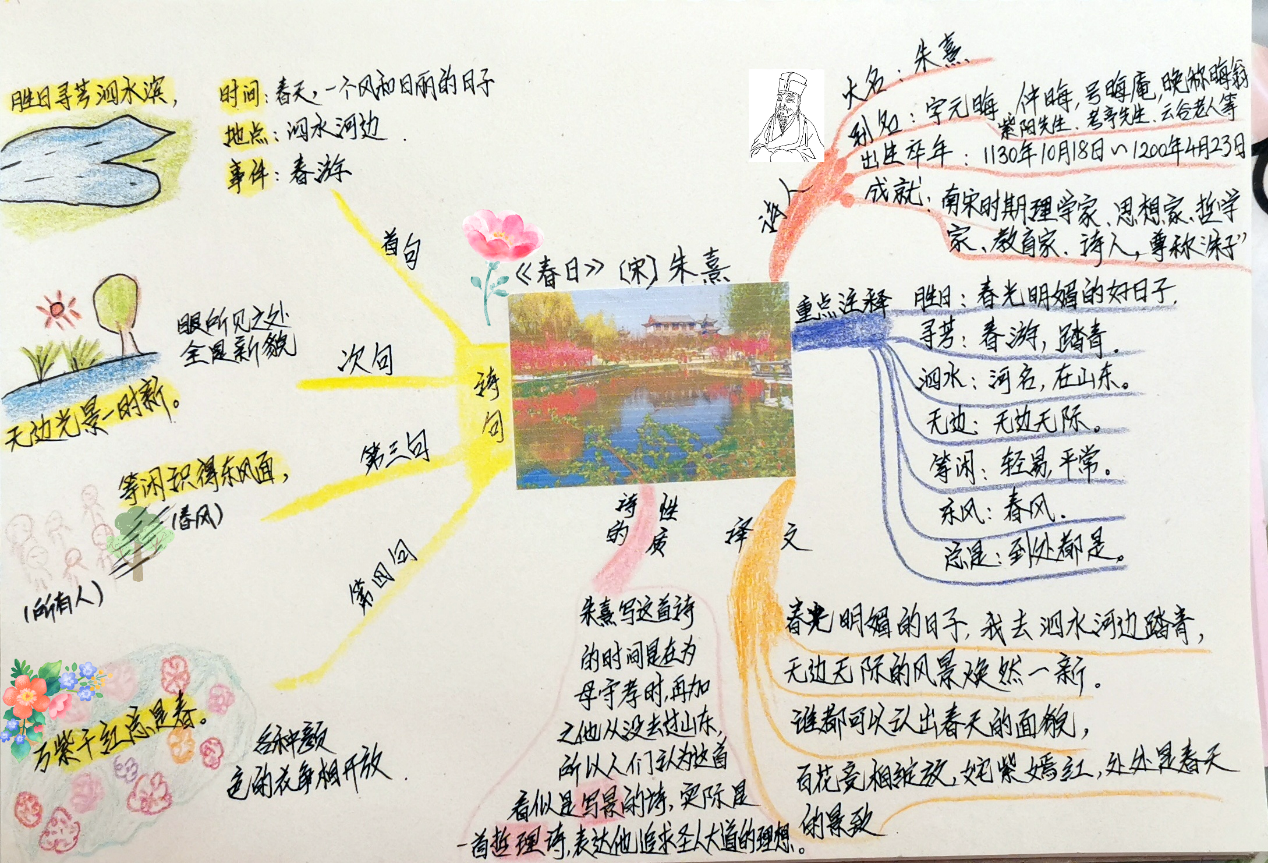 《春日》〔宋〕朱熹
诗人
大名：朱熹
别名：字元晦，仲晦，号晦庵，晚称晦翁
紫阳先生、考亭先生、云谷老人等
出生卒年：1130年10月18日~1200年4月23日
成就：南宋时期理学家、思想家、哲学
家、教育家、诗人，尊称“朱子”
重点注释
胜日：春光明媚的好日子.
寻芳：春游，踏青.
泗水：河名，在山东。
无边：无边无际。
等闲：轻易，平常。
东风：春风.
总是：到处都是。
译文
春光明媚的日子，我去泗水河边踏青，
无边无际的风景焕然一新.
谁都可以认出春天的面貌，
百花竞相绽放，姹紫嫣红，处处是春天
的景致
诗的性质
朱熹写这首诗
的时间是在为
母守孝时，再加
之他从没去过山东，
所以人们认为这首
看似是写景的诗，实际是
一首哲理诗，表达他追求圣人大道的理想。
诗句
首句
胜日寻芳泗水滨，
时间：春天，一个风和日丽的日子
地点：泗水河边.
事件：春游
次句
眼所见之处
全是新貌
无边光景一时新。
第三句
等闲识得东风面，
(春风)
(所有人)
第四句
万紫千红总是春。
各种颜
色的花争相开放.